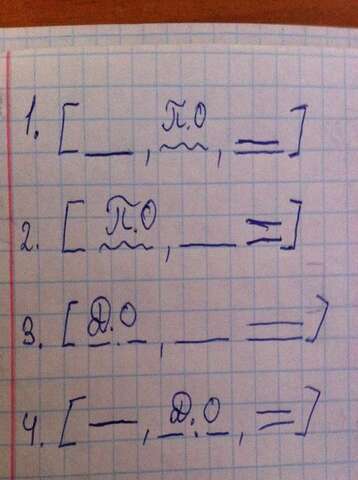 1. [ __ , П.О , = ]
2. [ П.О , __ = ]
3. [ Д.О , __ = ]
4. [ — , Д.О , = ]